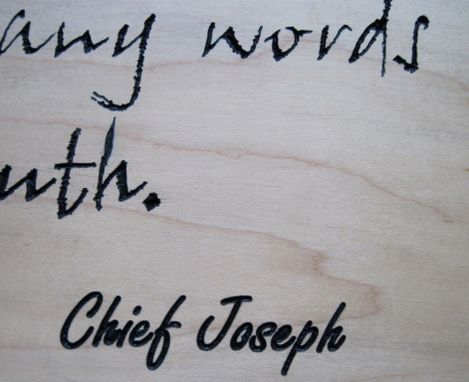 any words
uth.
Chief Joseph